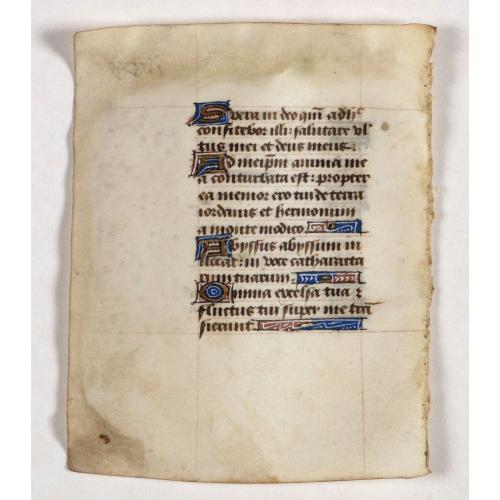 Spera in deo qm̄ adhc
confitebor illi: salutare vl
tus mei et deus meus:
Ad meip̄m anima me
a conturbata est: propter
ea memor ero tui de terra
iordanis et hermonium
a monte modico.
Abyssus abyssum in
uocat: in voce catharacta
rum tuarum.
Omnia excelsa tua ⁊
fluctus tui super me trā
sierunt.